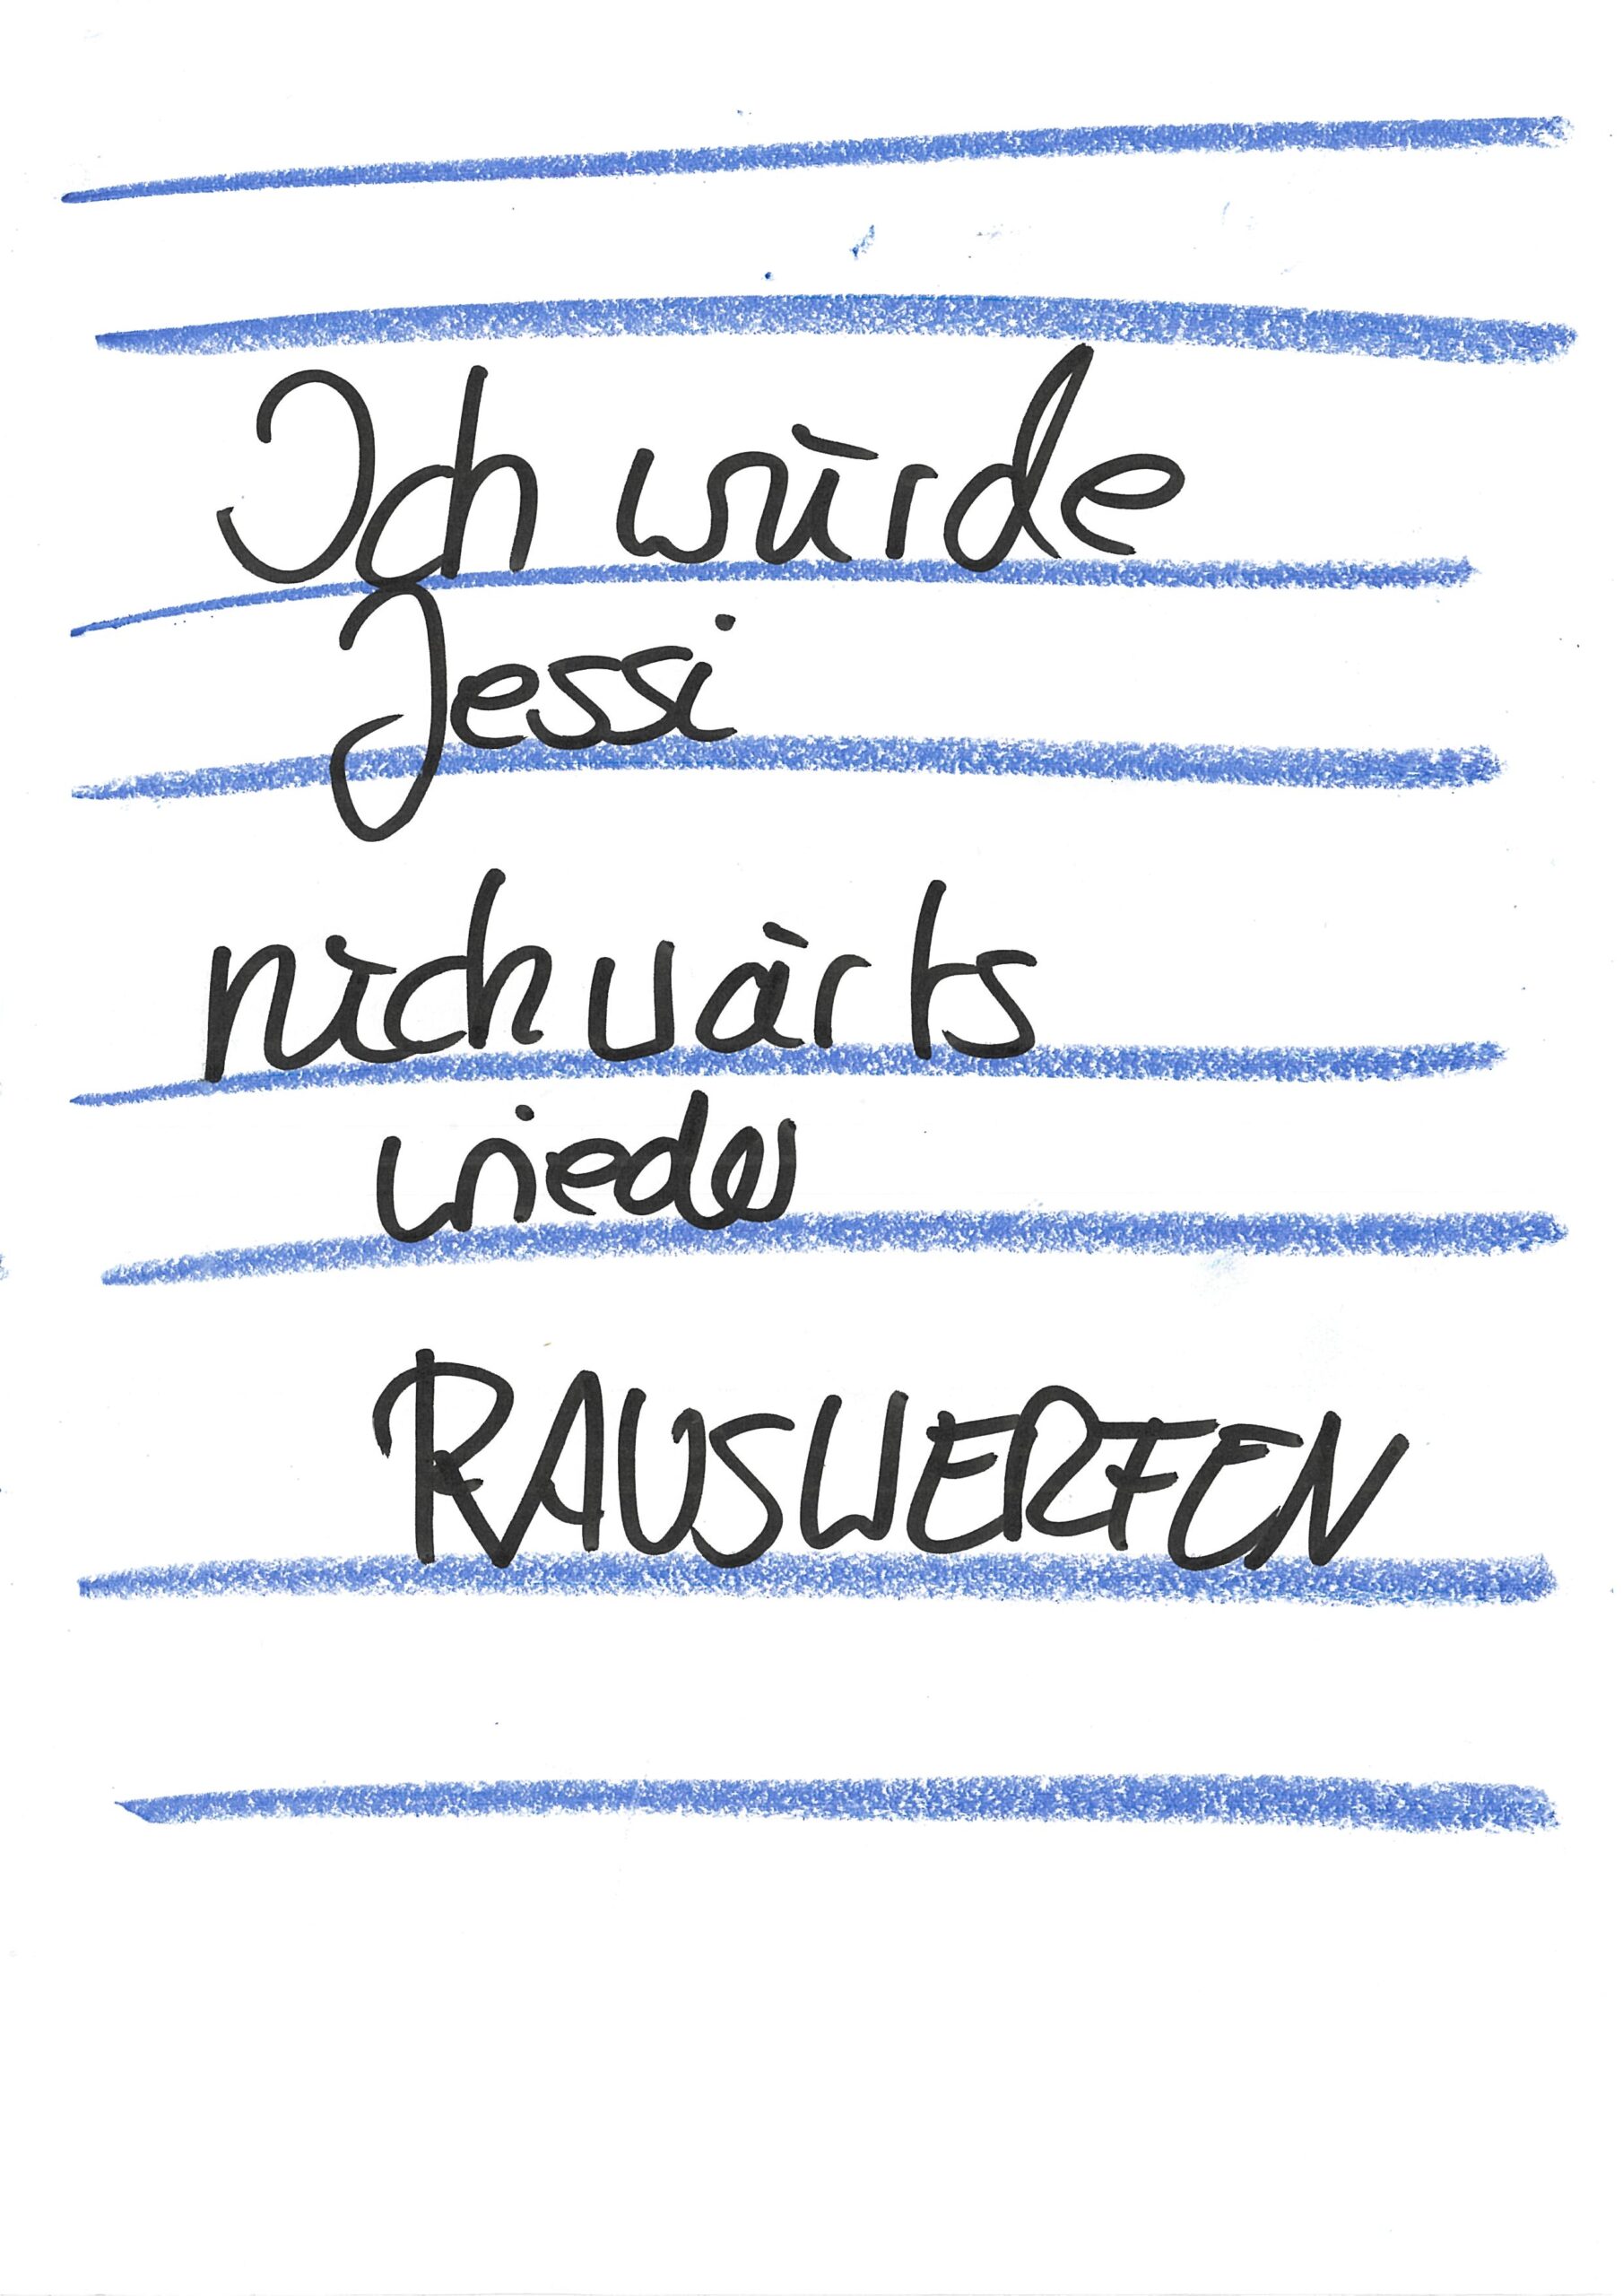 Ich würde
Jessi
nichvärts
wieder
RAUSWERFEN